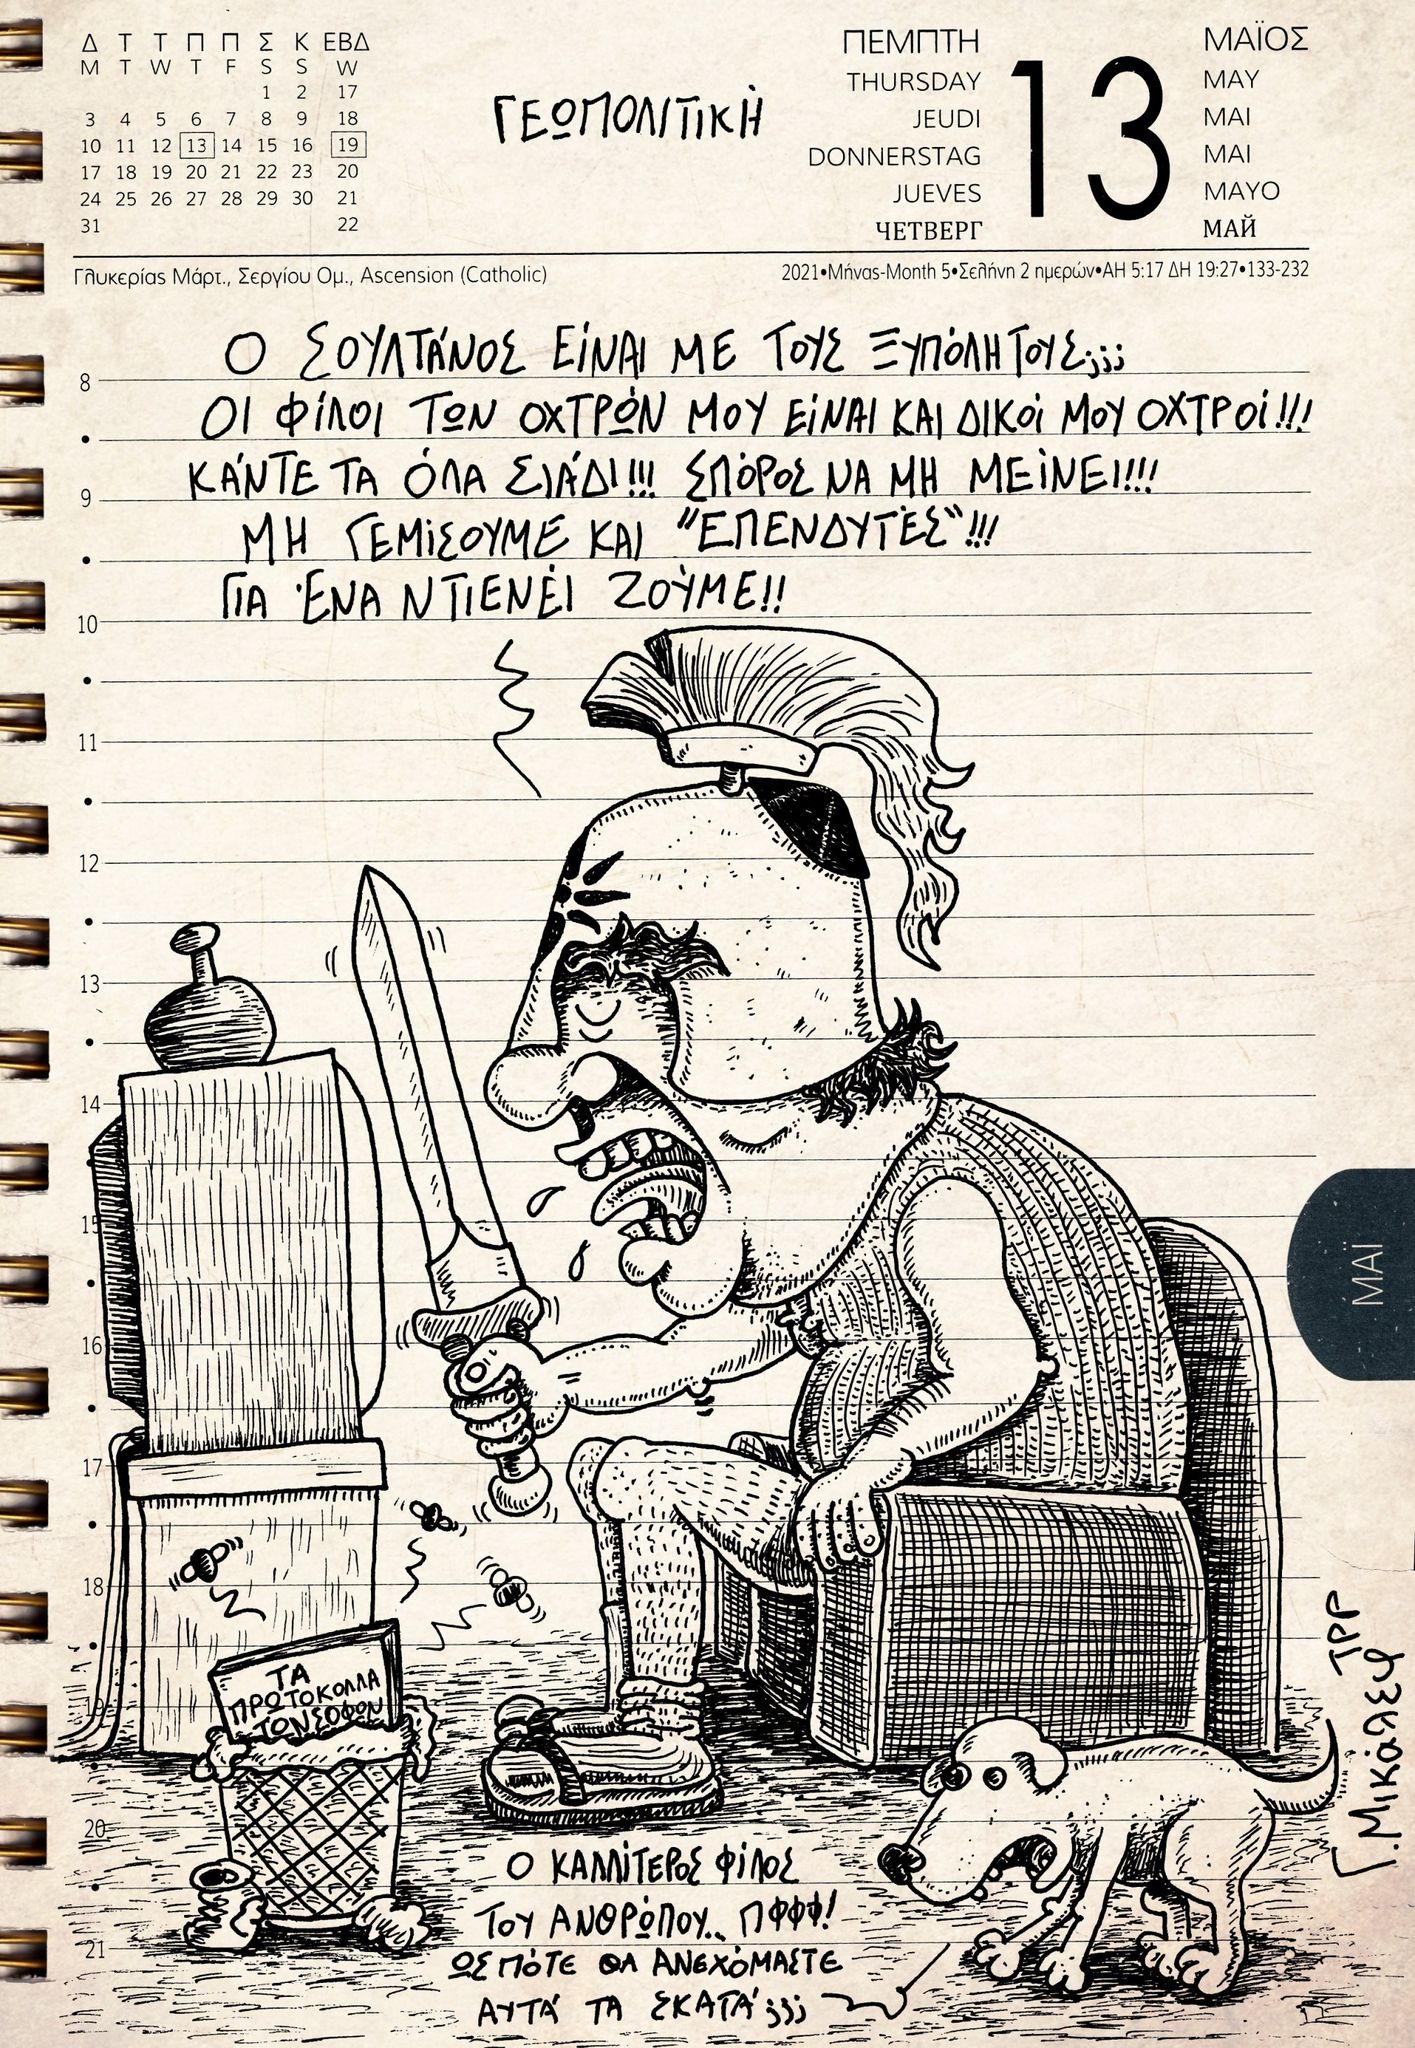 Δ Τ Τ Π Π Σ Κ ΕΒΔ
M T W T F S S W
1 2 17
3 4 5 6 7 8 9 18
10 11 12 13 14 15 16 19
17 18 19 20 21 22 23 20
24 25 26 27 28 29 30 21
31 22
ΓΕΩΠΟΛΙΤΙΚΗ
ΠΕΜΠΤΗ
THURSDAY
JEUDI
DONNERSTAG
JUEVES
ЧЕТВЕРГ
13
ΜΑΪΟΣ
MAY
MAI
MAI
MAYO
МАЙ
Γλυκερίας Μάρτ., Σεργίου Ομ., Ascension (Catholic)
2021•Μήνας-Month 5•Σελήνη 2 ημερών•ΑΗ 5:17 ΔΗ 19:27•133-232
Ο ΣΟΥΛΤΆΝΟΣ ΕΊΝΑΙ ΜΕ ΤΟΥΣ ΞΥΠΌΛΗΤΟΥΣ;;;
ΟΙ ΦΊΛΟΙ ΤΩΝ ΟΧΤΡΏΝ ΜΟΥ ΕΊΝΑΙ ΚΑΙ ΔΙΚΟΊ ΜΟΥ ΟΧΤΡΟΊ!!!
ΚΆΝΤΕ ΤΑ ΌΛΑ ΣΙΆΔΙ!!! ΣΠΌΡΟΣ ΝΑ ΜΗ ΜΕΊΝΕΙ!!!
ΜΗ ΓΕΜΊΣΟΥΜΕ ΚΑΙ "ΕΠΕΝΔΥΤΈΣ"!!!
ΓΙΑ ΈΝΑ ΝΤΙΕΝΈΙ ΖΟΎΜΕ!!
8
9
10
11
12
13
14
15
16
17
18
19
20
21
ΜΑΪ
ΤΑ
ΠΡΩΤΟΚΟΛΛΑ
ΤΩΝ ΣΟΦΩΝ
Ο ΚΑΛΛΊΤΕΡΟΣ ΦΊΛΟΣ
ΤΟΥ ΑΝΘΡΏΠΟΥ.. ΠΦΦΦ!
ΩΣ ΠΌΤΕ ΘΑ ΑΝΕΧΌΜΑΣΤΕ
ΑΥΤΆ ΤΑ ΣΚΑΤΆ;;;
Γ. ΜΙΚΆΛΕΦ
ΤΡΓ